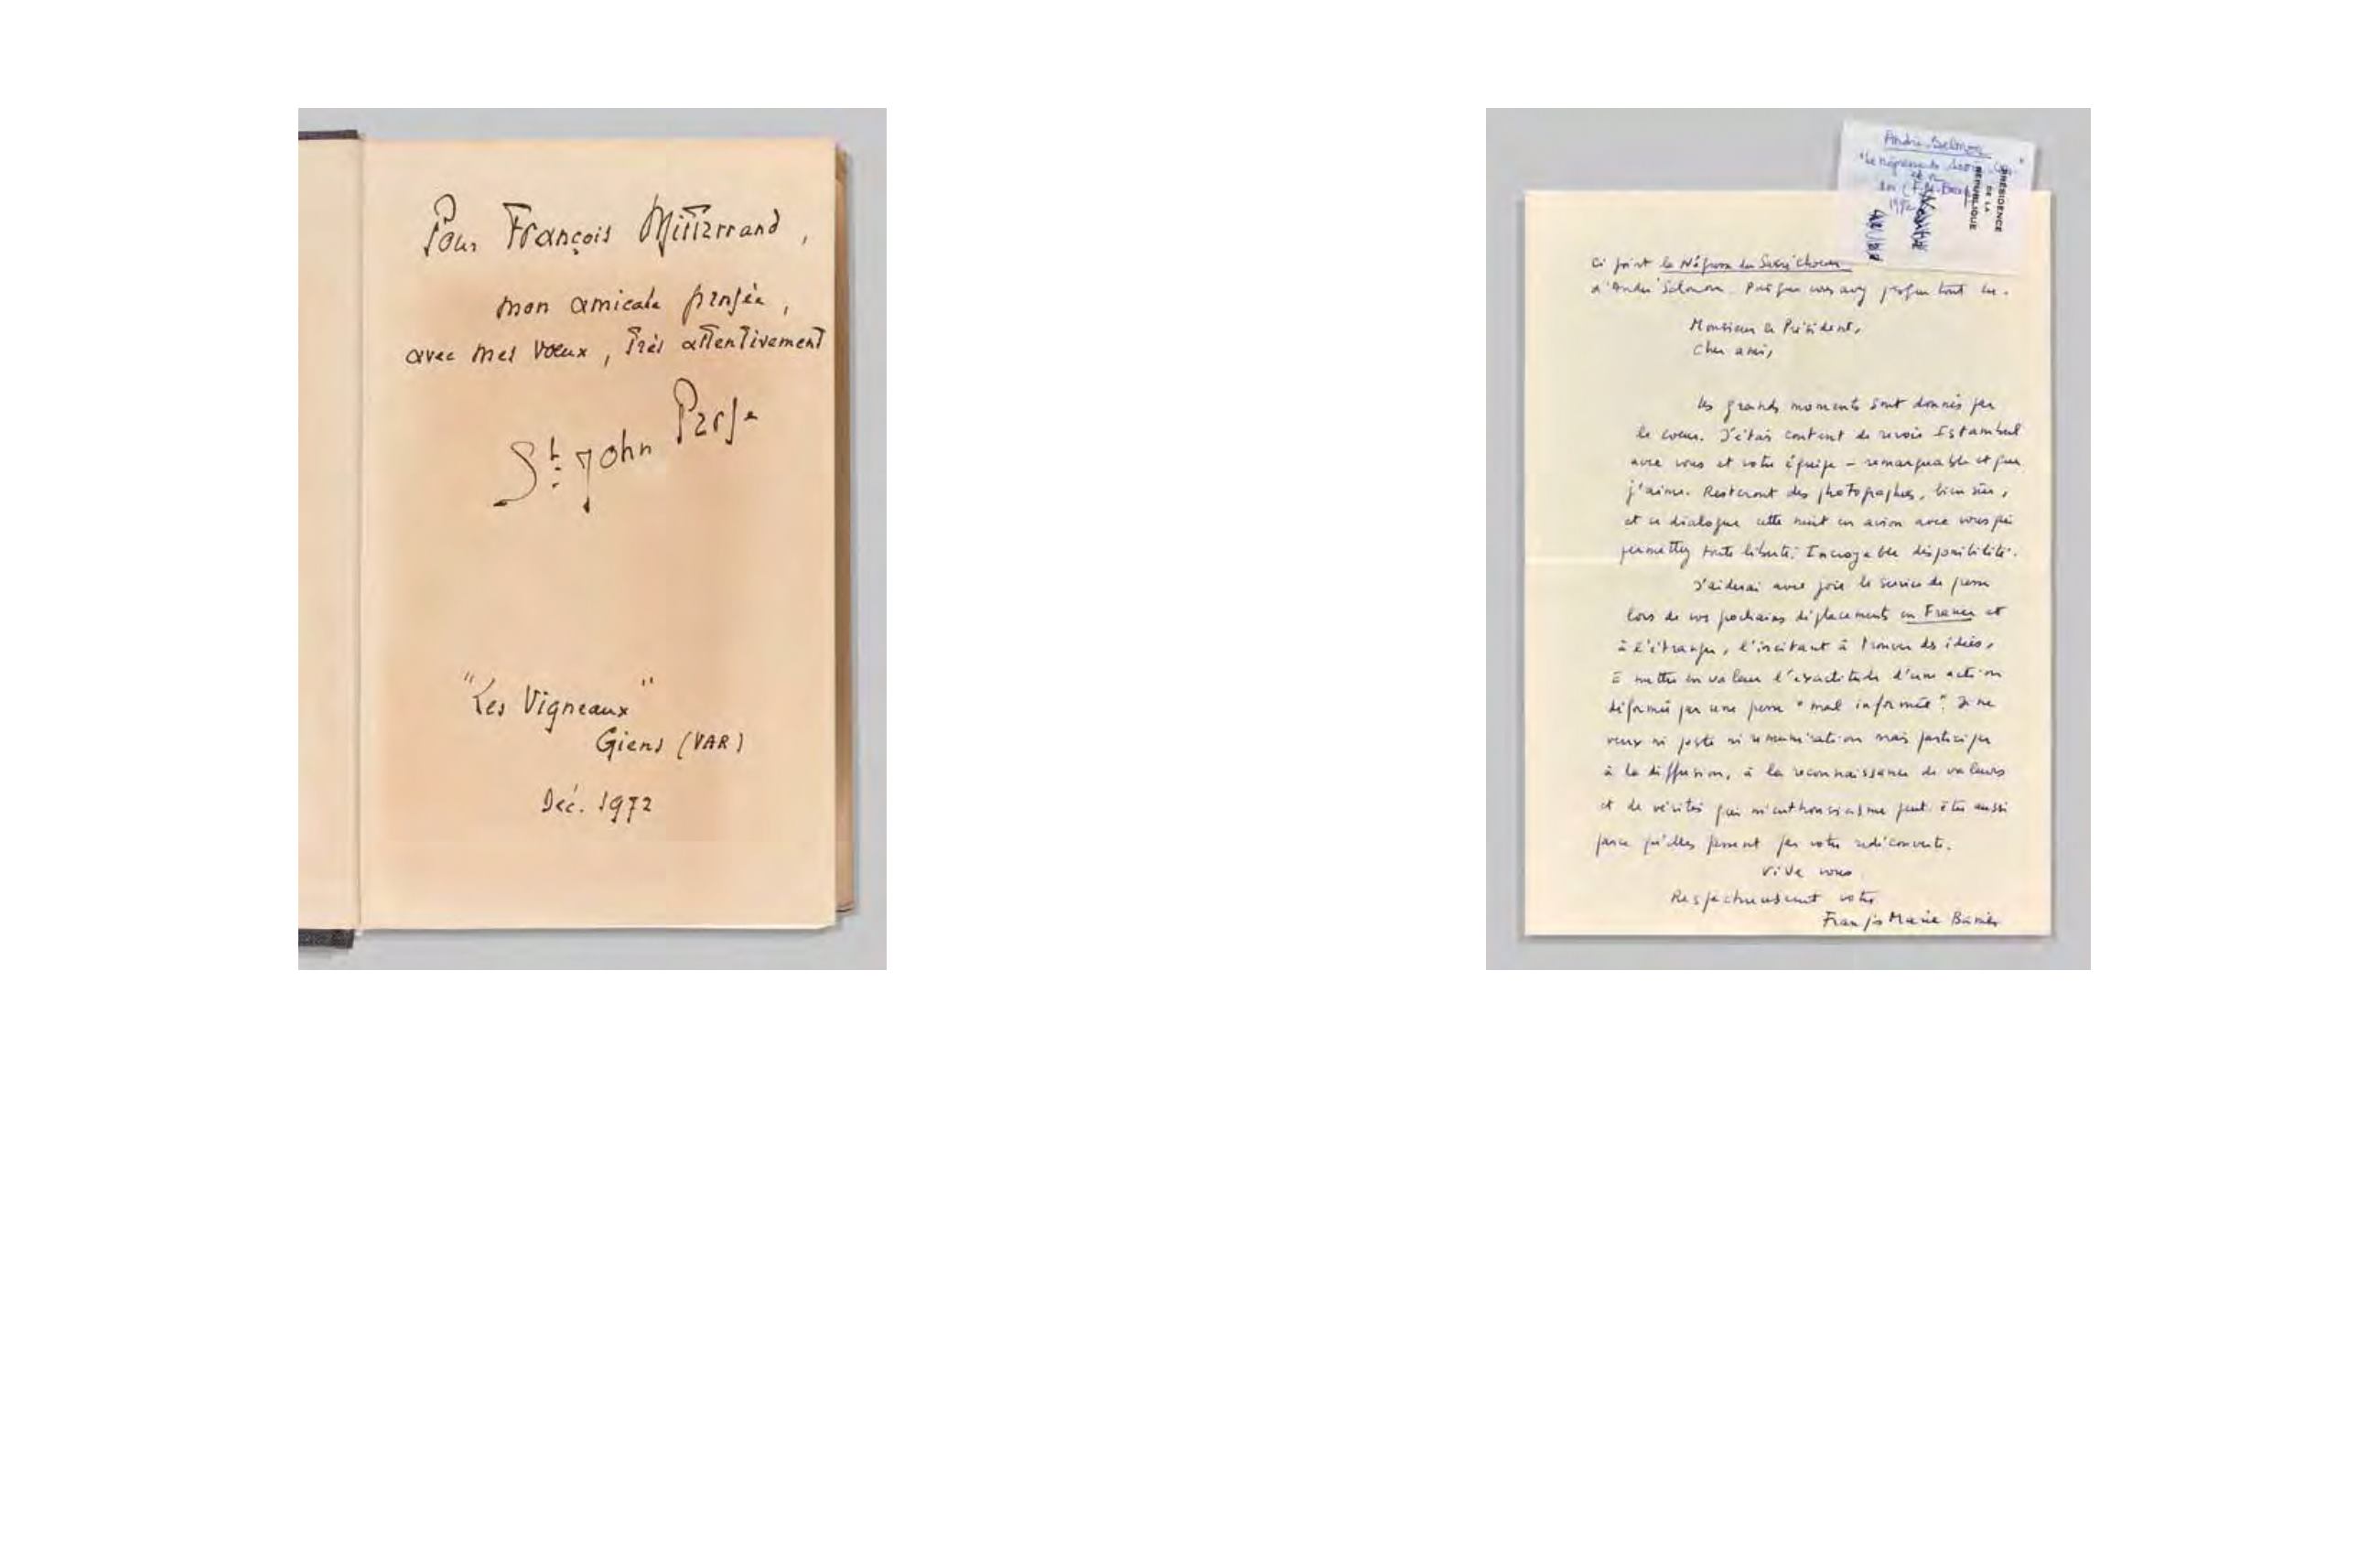 Pour François Mitterrand,
mon amicale pensée,
avec mes vœux, très attentivement
St. John Perse
"Les Vigneaux"
Giens (VAR)
Déc. 1972
André Salmon
1992
PRÉSIDENCE
DE LA
RÉPUBLIQUE
Ci joint la Négresse du Sacré Cœur
d'André Salmon. Puisque vous avez presque tout lu.
Monsieur le Président,
Cher ami,
Les grands moments sont donnés par
le coeur. J'étais content de revoir Istambul
avec vous et votre équipe – remarquable et que
j'aime. Resteront des photographies, bien sûr,
et ce dialogue cette nuit en avion avec vous qui
permettez toute liberté. Incroyable disponibilité.
J'aiderai avec joie le service de presse
lors de vos prochains déplacements en France et
à l'étranger, l'incitant à trouver des idées,
à mettre en valeur l'exactitude d'une action
déformée par une presse "mal informée". Je ne
veux ni poste ni rémunération mais participer
à la diffusion, à la reconnaissance de valeurs
et de vérités qui m'enthousiasment peut-être aussi
parce qu'elles passent par votre redécouverte.
Vive vous
Respectueusement votre
François Marie Banier